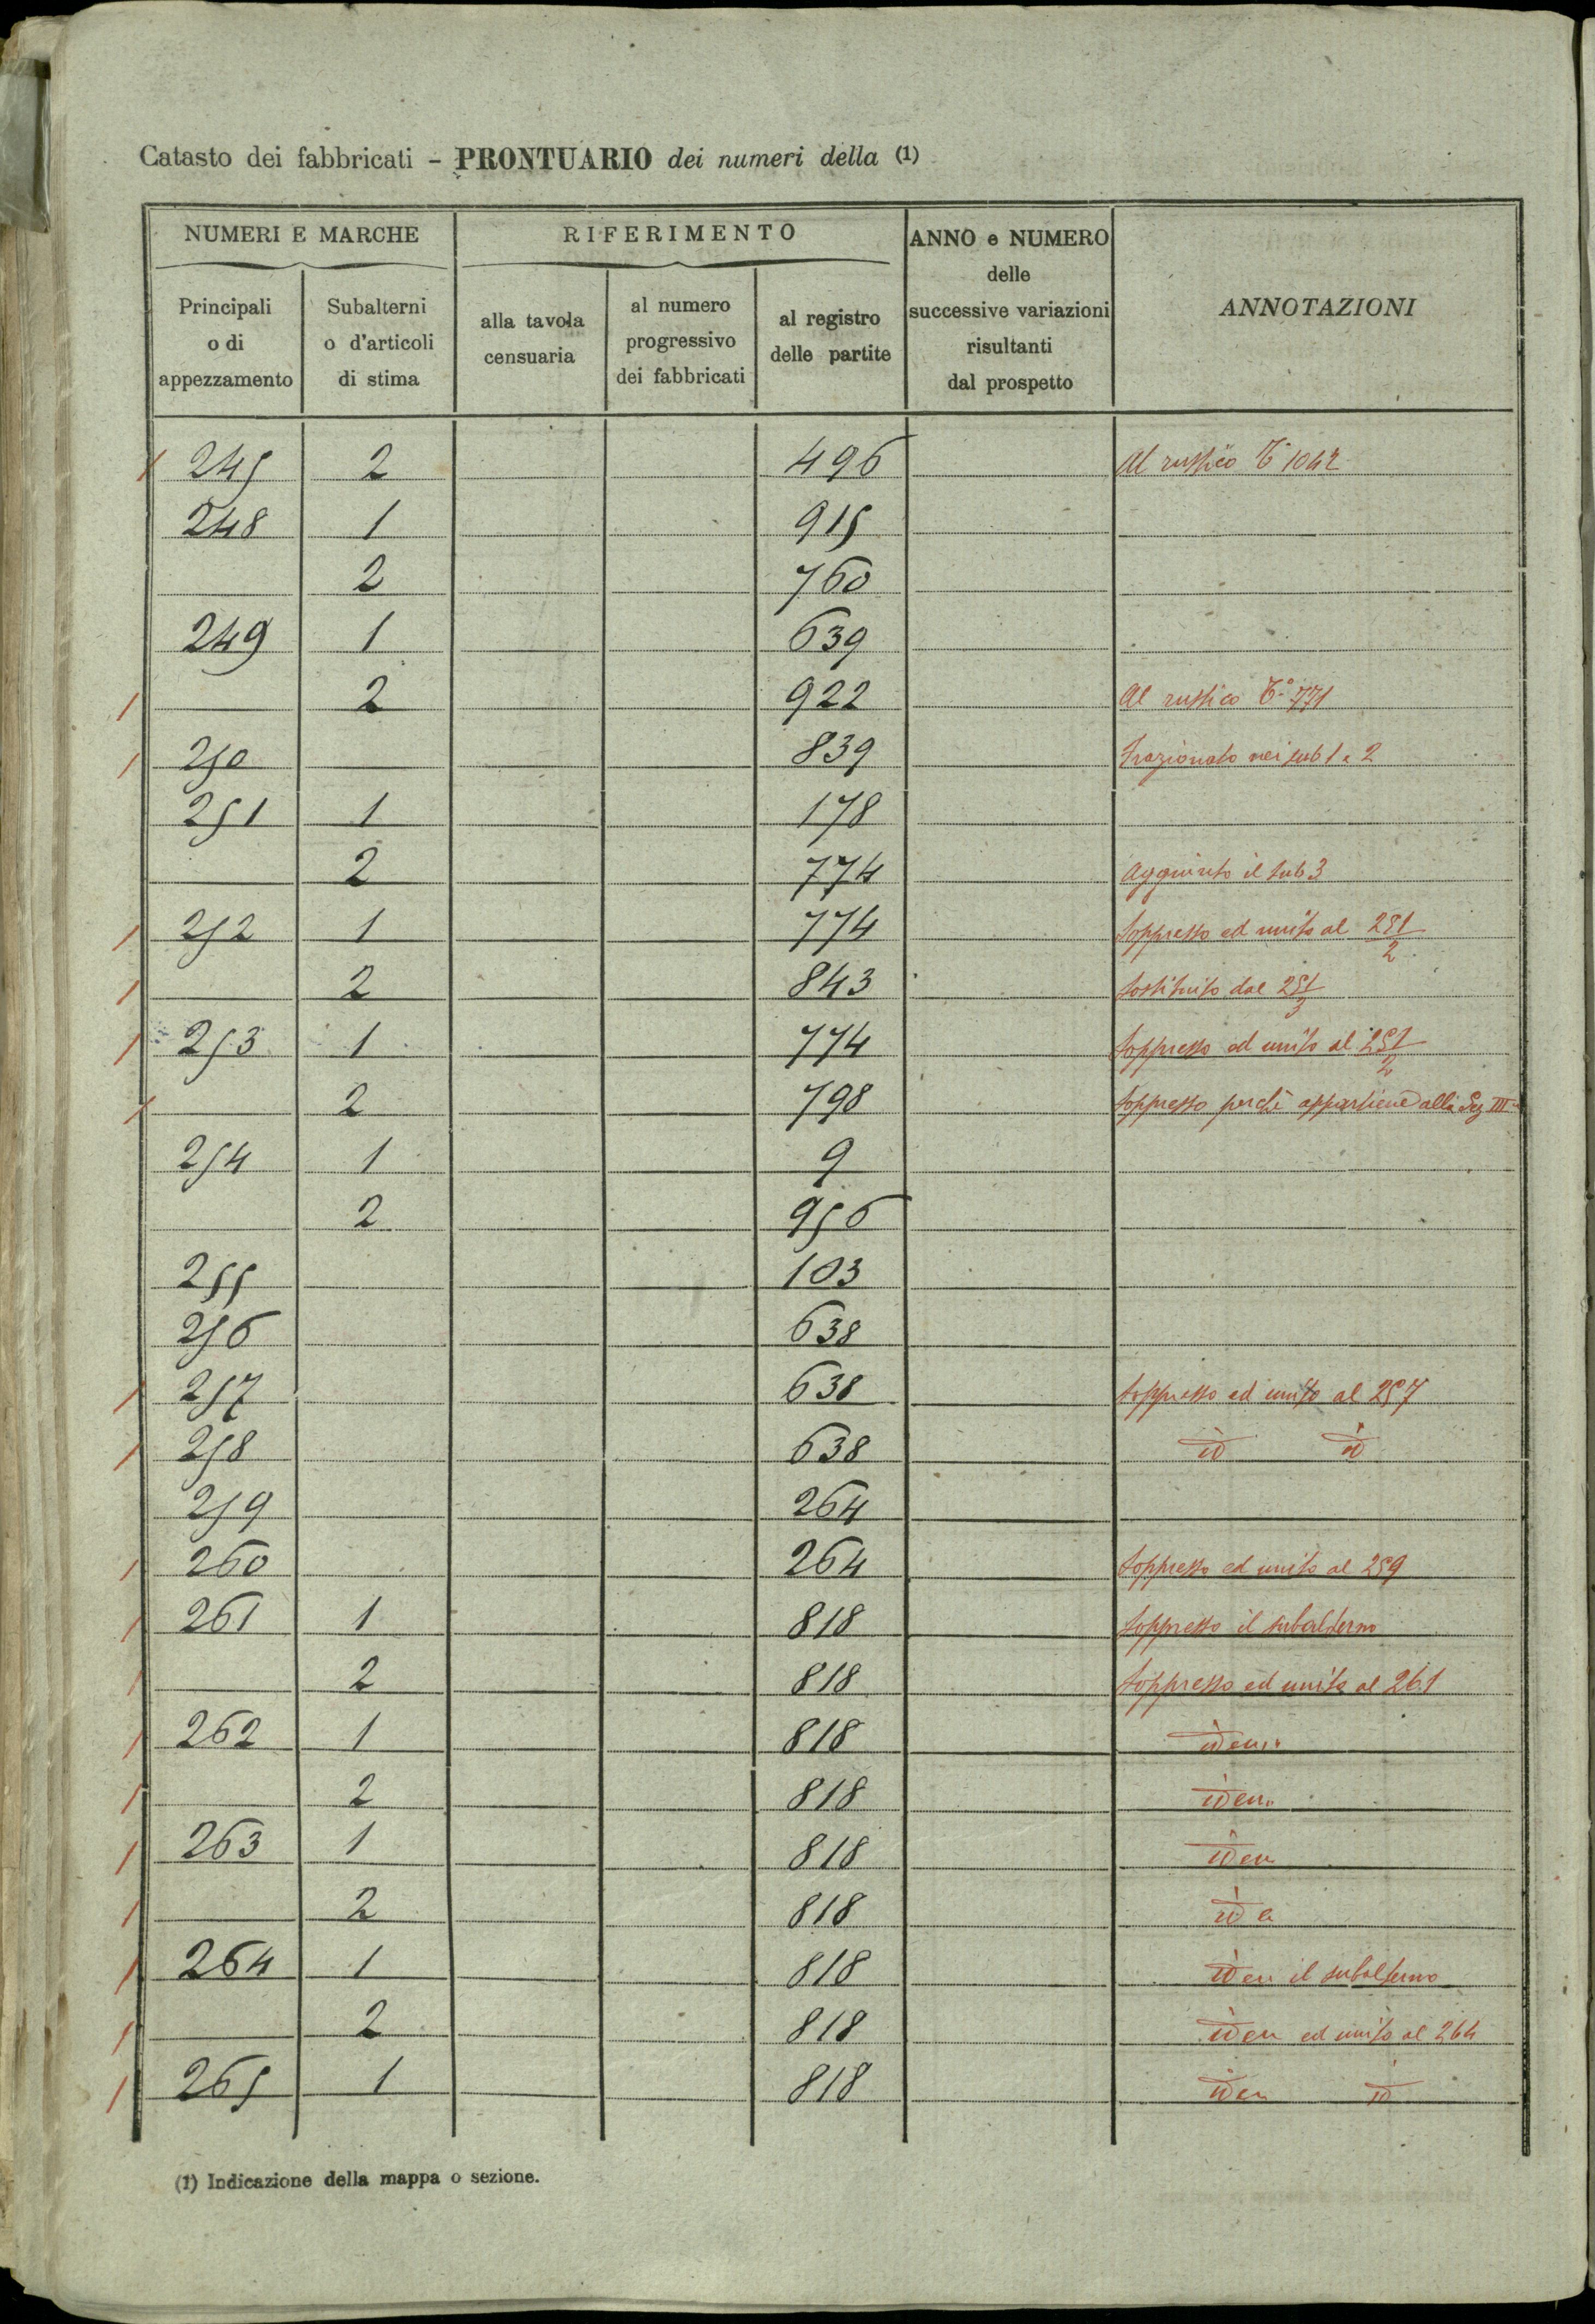 Catasto dei fabbricati - PRONTUARIO dei numeri della (1)
NUMERI E MARCHE
RIFERIMENTO
ANNO e NUMERO delle successive variazioni risultanti dal prospetto
ANNOTAZIONI
Principali o di appezzamento
Subalterni o d'articoli di stima
alla tavola censuaria
al numero progressivo dei fabbricati
al registro delle partite
245 2 496 Al rustico 1042
248 1 915
2 760
249 1 639
2 922 Al rustico 771
250 839 Frazionato nei sub 1 e 2
251 1 178
2 774 Aggiunto il sub 3
252 1 774 Soppresso ed unito al 251/2
2 843 Sostituito dal 251/3
253 1 774 Soppresso ed unito al 251/2
2 798 Soppresso perchè appartiene alla Sez III
254 1 9
2 956
255 103
256 638
257 638 Soppresso ed unito al 257
258 638 id id
259 264
260 264 Soppresso ed unito al 259
261 1 818 Soppresso il subalterno
2 818 Soppresso ed unito al 261
262 1 818 idem
2 818 idem
263 1 818 idem
2 818 idem
264 1 818 idem il subalterno
2 818 idem ed unito al 264
265 1 818 idem id
(1) Indicazione della mappa o sezione.